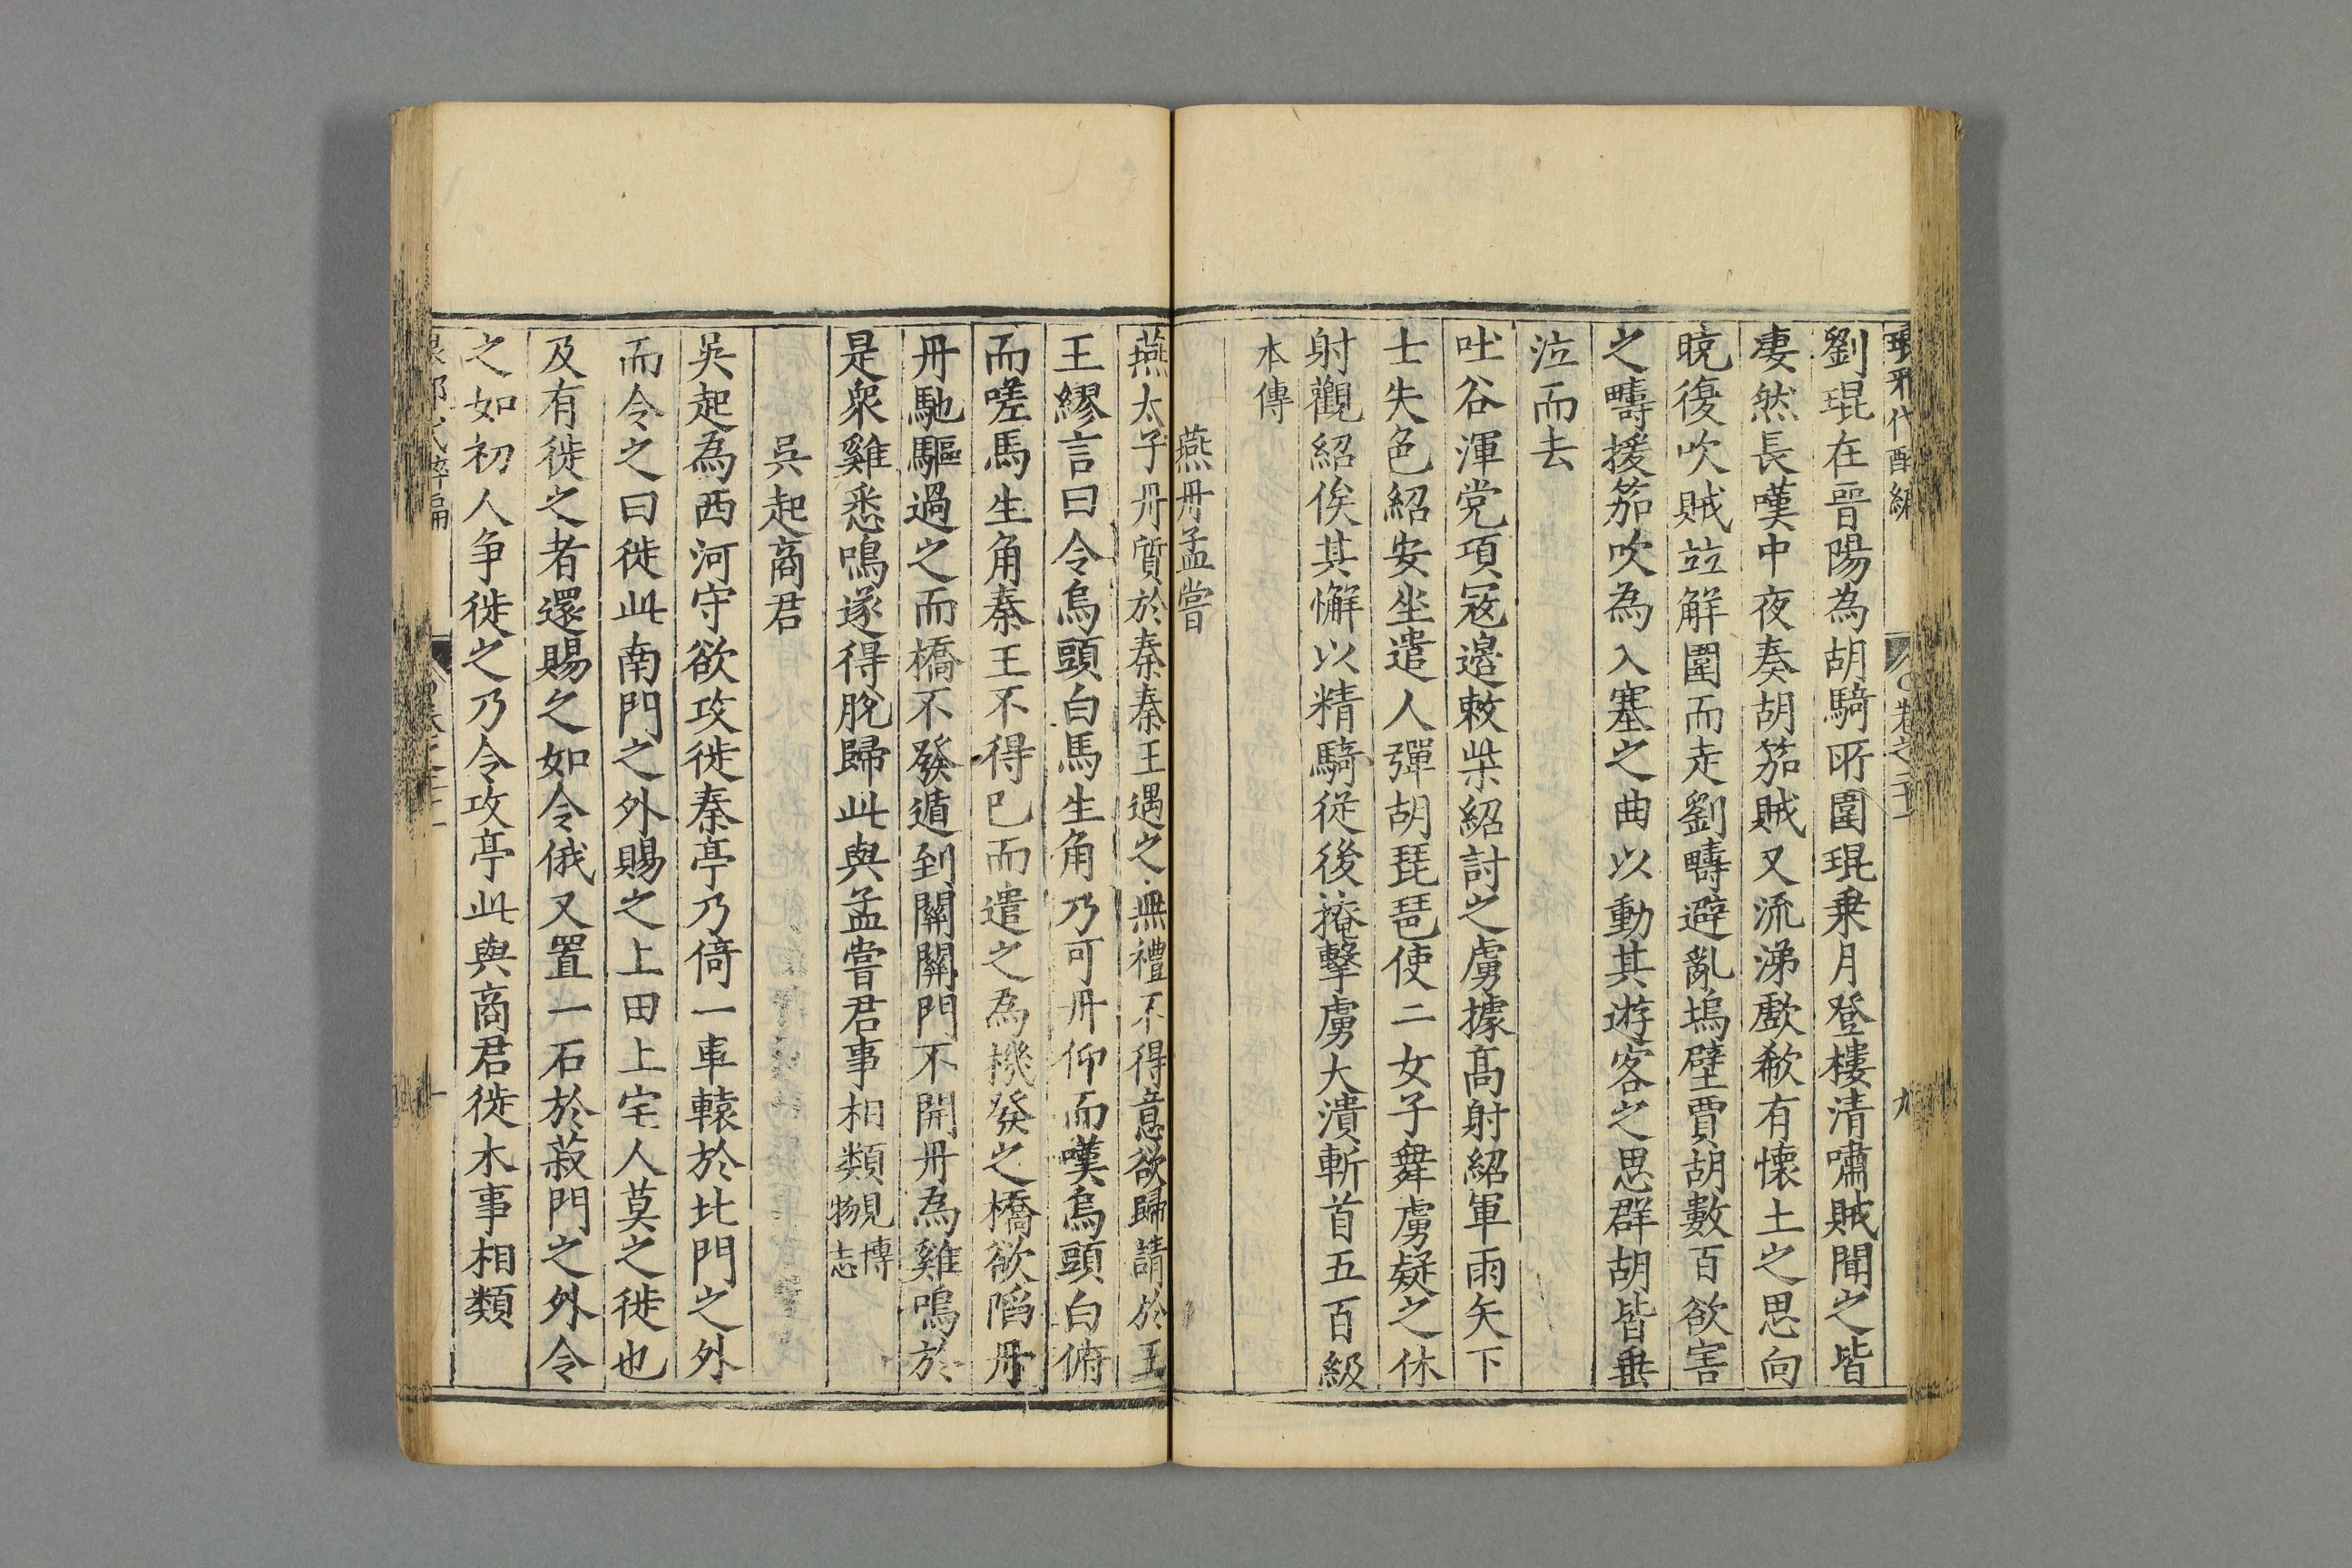 劉琨在晉陽為胡騎所圍琨乗月登樓清嘯賊聞之皆
凄然長嘆中夜奏胡笳賊又流涕歔欷有懷土之思向
曉復吹賊竝解圍而走劉疇避亂塢壁賈胡數百欲害
之疇援笳吹為入塞之曲以動其遊客之思群胡皆垂
泣而去
吐谷渾党項㓂邉敕柴紹討之虜據髙射紹軍雨矢下
士失色紹安坐遣人彈胡琵琶使二女子舞虜疑之休
射觀紹俟其懈以精騎從後掩擊虜大潰斬首五百級
本傳
燕丹孟嘗
燕太子丹質於秦秦王遇之無禮不得意欲歸請於王
王繆言曰令烏頭白馬生角乃可丹仰而嘆烏頭白俯
而嗟馬生角秦王不得已而遣之為機發之橋欲陷丹
丹馳驅過之而橋不發遁到關關門不開丹為雞鳴於
是衆雞悉鳴遂得脫歸此與孟嘗君事相類見博物志
吳起商君
吳起為西河守欲攻徙秦亭乃倚一車轅於北門之外
而令之曰徙此南門之外賜之上田上宅人莫之徙也
及有徙之者還賜之如令俄又置一石於菽門之外令
之如初人争徙之乃令攻亭此與商君徙木事相類